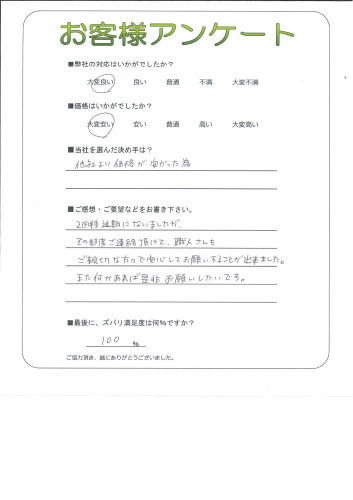 お客様アンケート
■弊社の対応はいかがでしたか？
大変良い 良い 普通 不満 大変不満
■価格はいかがでしたか？
大変安い 安い 普通 高い 大変高い
■当社を選んだ決め手は？
他社より価格が安かった為
■ご感想・ご要望などをお書き下さい。
2回程延期になりましたが、
その都度ご連絡頂けて、職人さんも
ご親切な方々で安心してお願いすることが出来ました。
また何かあれば是非お願いしたいです。
■最後に、ズバリ満足度は何％ですか？
100 %
ご協力頂き、誠にありがとうございました。